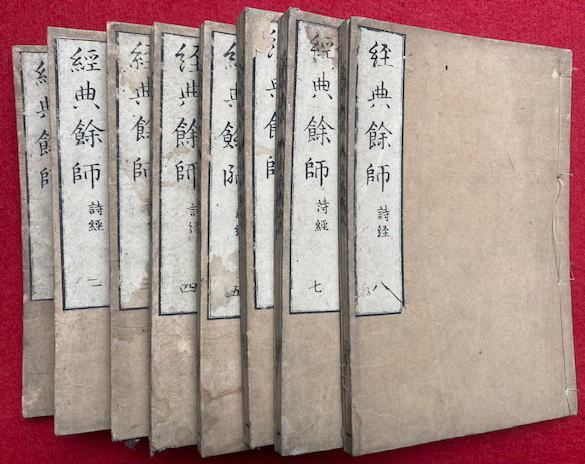 經典餘師
經典餘師
詩經
二
經典餘師
三
経典餘師
詩経
四
經典餘師
詩経
五
経典餘師
經典餘師
詩經
七
経典餘師
詩経
八